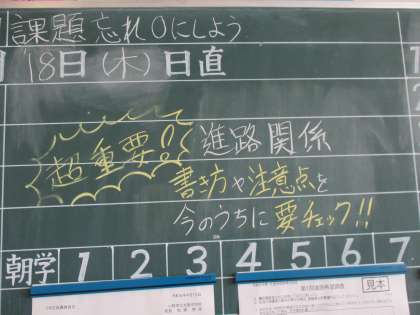 課題忘れ0にしよう
18日(木)日直
超重要!! 進路関係
書き方や注意点を
今のうちに要チェック!!
朝学 1 2 3 4 5 6 7
見本